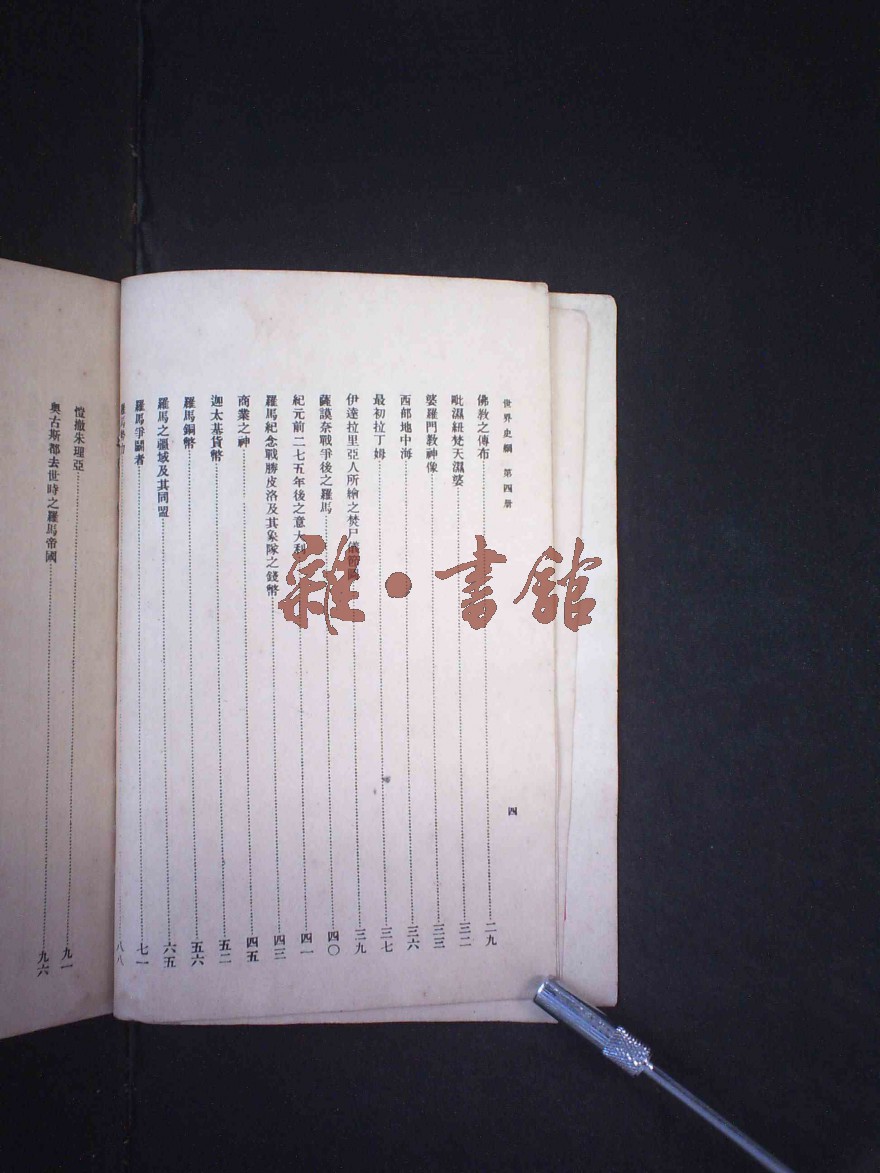 世界史綱 第四册 四
佛教之傳布 二九
毗濕紐梵天濕婆 三二
婆羅門教神像 三三
西部地中海 三六
最初拉丁姆 三七
伊達拉里亞人所繪之焚尸儀 三九
薩謨奈戰爭後之羅馬 四〇
紀元前二七五年後之意大利 四一
羅馬紀念戰勝皮洛及其象隊之錢幣 四三
商業之神 四五
迦太基貨幣 五二
羅馬銅幣 五六
羅馬之疆域及其同盟 六五
羅馬爭鬭者 七一
羅馬 八八
愷撒朱理亞 九一
奧古斯都去世時之羅馬帝國 九六
雜·書館